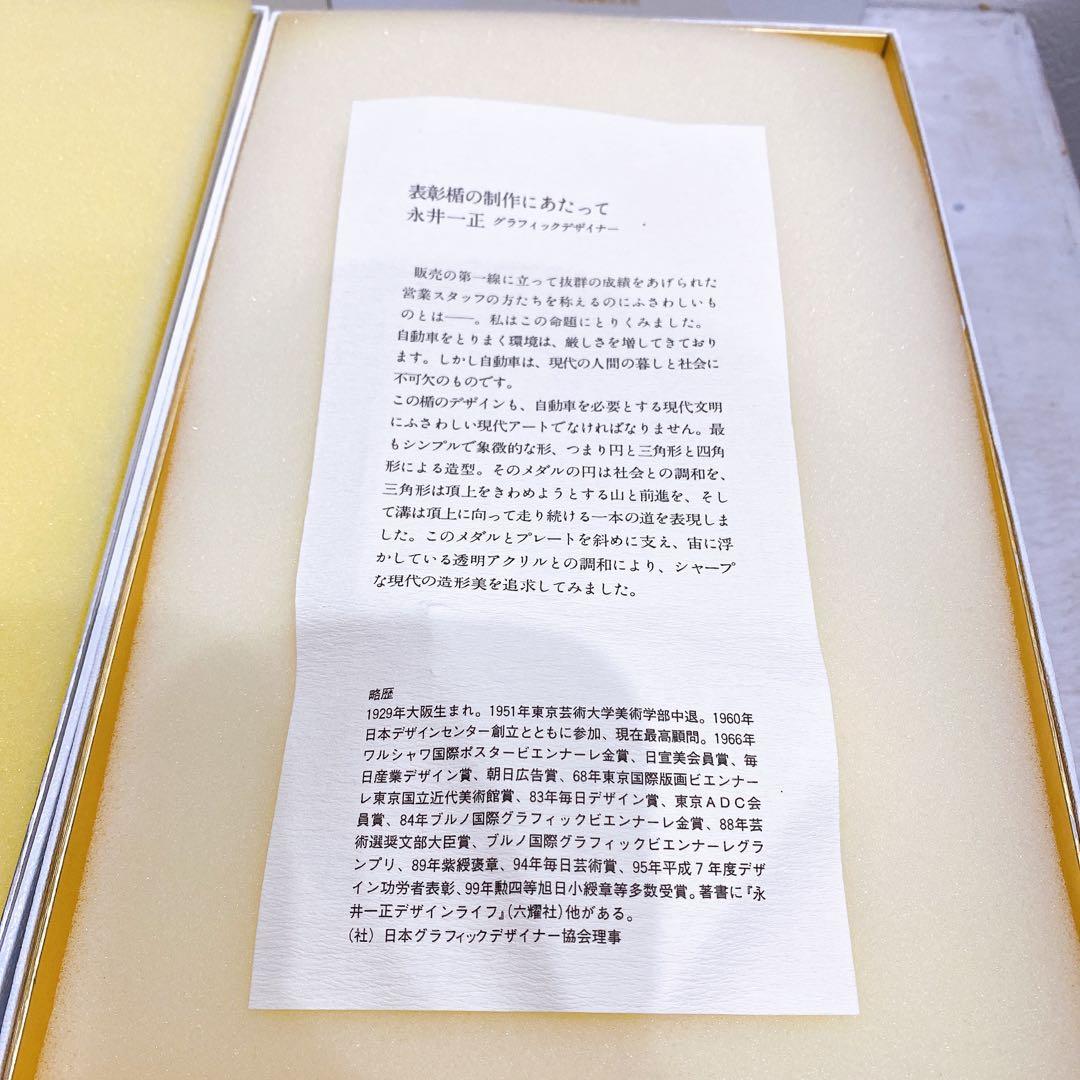 表彰楯の制作にあたって
永井一正 グラフィックデザイナー
販売の第一線に立って抜群の成績をあげられた
営業スタッフの方たちを称えるのにふさわしいも
のとは——。私はこの命題にとりくみました。
自動車をとりまく環境は、厳しさを増してきており
ます。しかし自動車は、現代の人間の暮しと社会に
不可欠のものです。
この楯のデザインも、自動車を必要とする現代文明
にふさわしい現代アートでなければなりません。最
もシンプルで象徴的な形、つまり円と三角形と四角
形による造型。そのメダルの円は社会との調和を、
三角形は頂上をきわめようとする山と前進を、そし
て溝は頂上に向って走り続ける一本の道を表現しま
した。このメダルとプレートを斜めに支え、宙に浮
かしている透明アクリルとの調和により、シャープ
な現代の造形美を追求してみました。
略歴
1929年大阪生まれ。1951年東京芸術大学美術学部中退。1960年
日本デザインセンター創立とともに参加、現在最高顧問。1966年
ワルシャワ国際ポスタービエンナーレ金賞、日宣美会員賞、毎
日産業デザイン賞、朝日広告賞、68年東京国際版画ビエンナー
レ東京国立近代美術館賞、83年毎日デザイン賞、東京ADC会
員賞、84年ブルノ国際グラフィックビエンナーレ金賞、88年芸
術選奨文部大臣賞、ブルノ国際グラフィックビエンナーレグラ
ンプリ、89年紫綬褒章、94年毎日芸術賞、95年平成7年度デザ
イン功労者表彰、99年勲四等旭日小綬章等多数受賞。著書に『永
井一正デザインライフ』(六耀社)他がある。
(社)日本グラフィックデザイナー協会理事